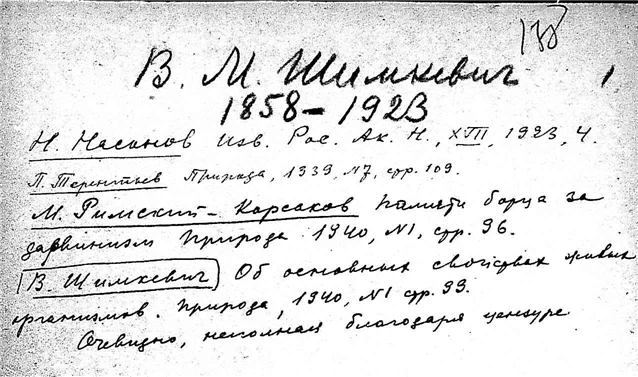 138
В. М. Шимкевич
1858–1923
Н. Насонов Изв. Рос. Ак. Н., XVII, 1923, 4.
П. Терентьев Природа, 1939, N7, стр. 109.
М. Римский-Корсаков Памяти борца за
дарвинизм Природа 1940, N1, стр. 96.
В. Шимкевич Об основных свойствах живых
организмов. Природа, 1940, N1 стр. 99.
Очевидно, неполная благодаря цензуре